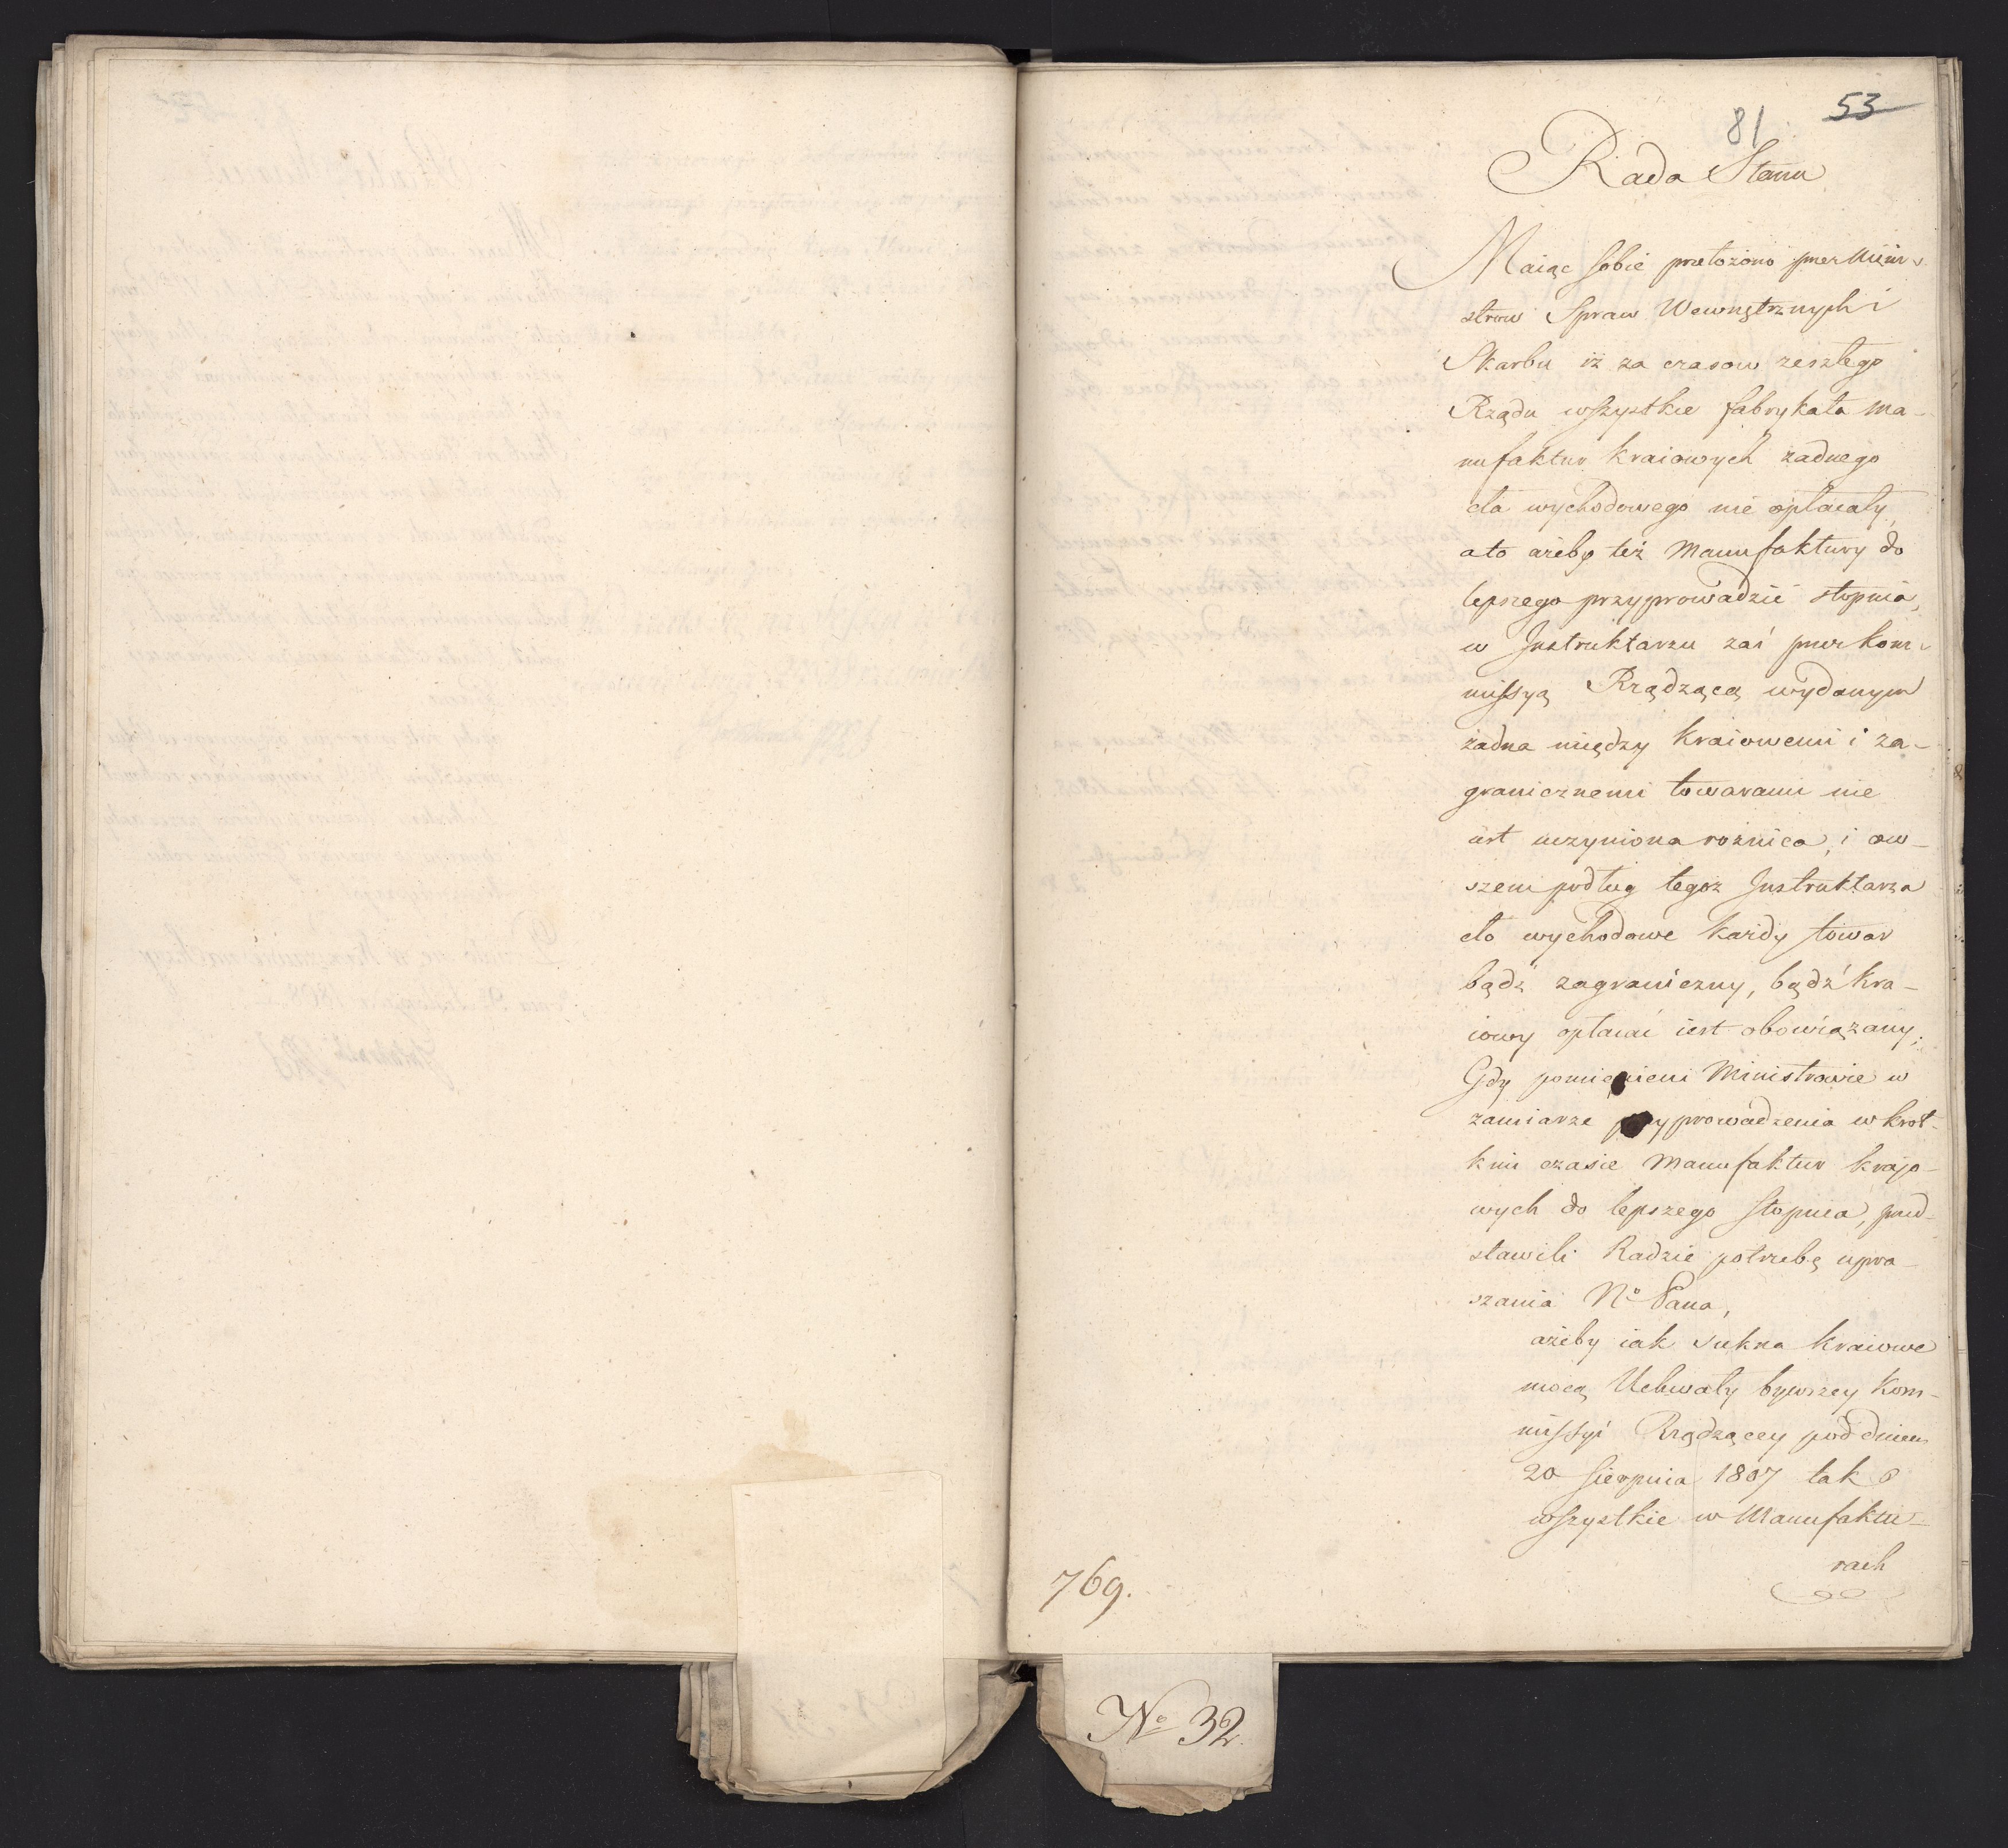 53
81
Rada Stanu
Maiąc sobie przełożono przez Mini-
strow Spraw Wewnętrznych i
Skarbu iż za czasow zeszłego
Rządu wszystkie fabrykata ma-
nufaktur kraiowych żadnego
cła wychodowego nie opłacały,
a to ażeby też Manufaktury do
lepszego przyprowadzić stopnia,
w Instruktarzu zaś przez Kom-
missyą Rządzącą wydanym
żadna między kraiowemi i za-
granicznemi towarami nie
iest uczyniona rożnica, i ow-
szem podług tegoż Instruktarza
cło wychodowe każdy towar
bądź zagraniczny, bądź kra-
iowy opłacać iest obowiązany;
Gdy pomienieni Ministrowie w
zamiarze przyprowadzenia w krot-
kim czasie Manufaktur krajo-
wych do lepszego stopnia, przed-
stawili Radzie potrzebę upra-
szania No Pana,
ażeby iak sukna kraiowe
mocą Uchwały bywszey Kom-
missyi Rządzącey pod dniem
20 Sierpnia 1807 tak
wszystkie w Manufaktu-
rach
769.
No 32.